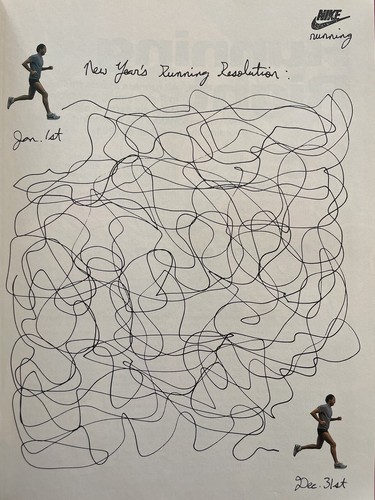 NIKE
running
New Year's Running Resolution:
Jan. 1st
Dec. 31st